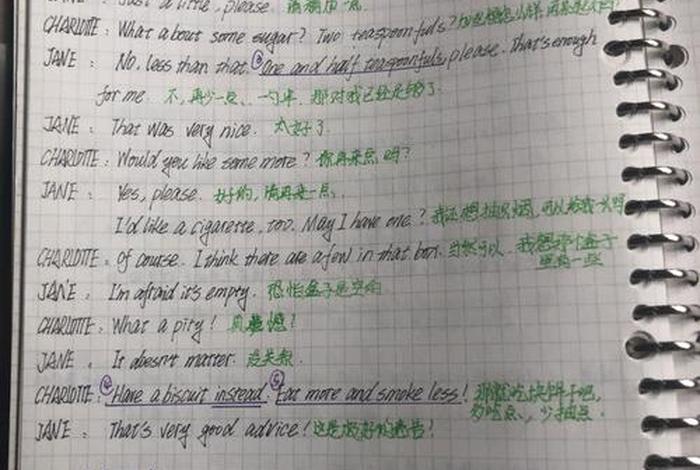 Just a little, please.
CHARLOTTE: What about some sugar? Two teaspoonfuls?
JANE: No, less than that. ③One and half teaspoonfuls, please. That's enough
for me. 不,再少一点,一勺半,那对我已经足够了.
JANE: That was very nice. 太好了
CHARLOTTE: Would you like some more? 你再来点吗?
JANE: Yes, please. 好的,请再来一点.
I'd like a cigarette, too. May I have one? 我还想抽只烟,可以给我一只吗
CHARLOTTE: Of course. I think there are a few in that box. 当然可以. 我想那个盒子
里有一些
JANE: I'm afraid it's empty. 恐怕盒子是空的
CHARLOTTE: What a pity! 真遗憾!
JANE: It doesn't matter. 没关系.
CHARLOTTE: ④Have a biscuit instead. ⑤Eat more and smoke less! 那就吃块饼干吧,
多吃点,少抽点.
JANE: That's very good advice! 这是极好的忠告!